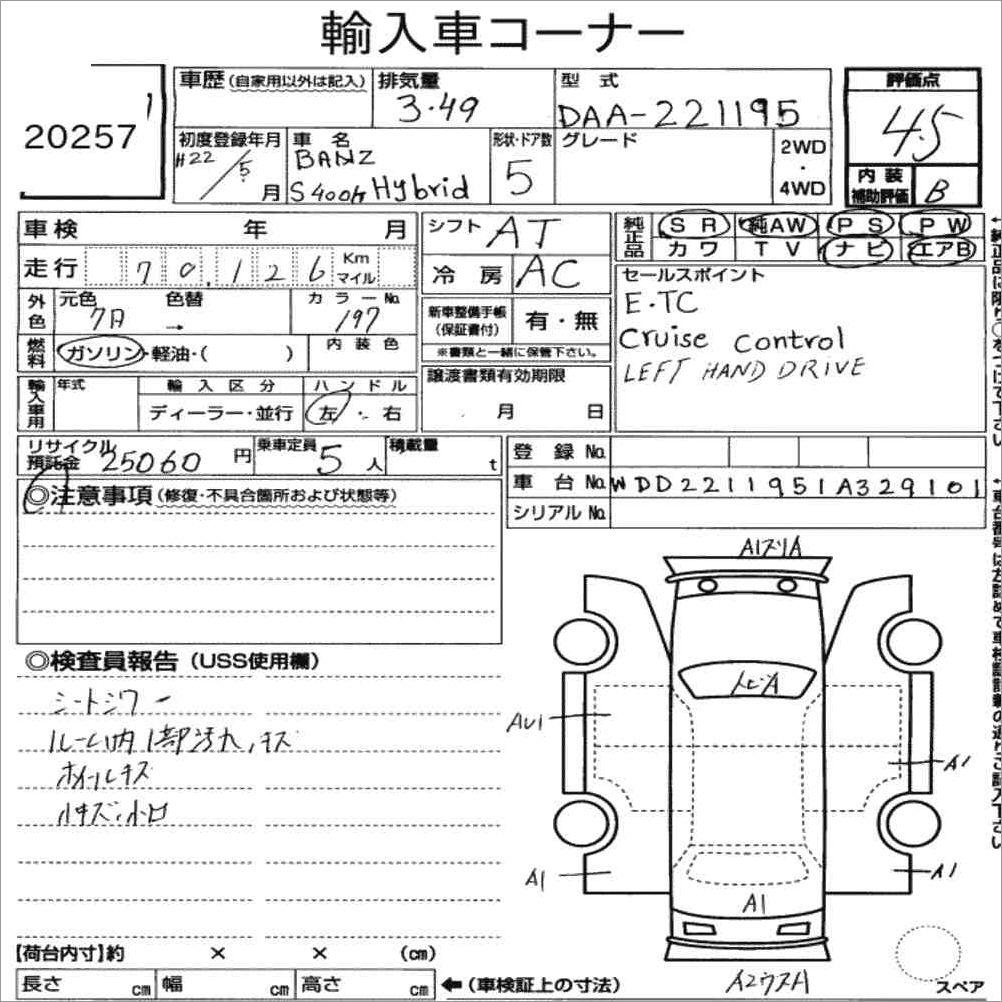 輸入車コーナー
20257
車歴(自家用以外は記入)
排気量
3.49
型式
DAA-221195
評価点
4.5
初度登録年月
H22/5月
車名
BANZ
S400h Hybrid
形状・ドア数
5
グレード
2WD
・
4WD
内装
補助評価
B
車検 年 月
走行 70,126 Km マイル
外色
元色
色替
カラーNo.
197
燃料
ガソリン・軽油・( )
内装色
輸入車用
年式
輸入区分
ディーラー・並行
ハンドル
左・右
シフト AT
冷房 AC
新車整備手帳
(保証書付)
有・無
※書類と一緒に保管下さい。
譲渡書類有効期限
月 日
純正品
SR 純AW PS PW
カワ TV ナビ エアB
セールスポイント
E.TC
Cruise control
LEFT HAND DRIVE
リサイクル
預託金 25060円
乗車定員 5人
積載量 t
登録No.
車台No. WDD2211951A329101
シリアルNo.
◎注意事項(修復・不具合箇所および状態等)
◎検査員報告(USS使用欄)
シートシワー
ルーム内1部汚れ,キズ
ホイールキズ
小キズ・小凹
A1スリA
トビA
AU1
A1
A1
A1
A1
A2ウスA
スペア
【荷台内寸】約 × × (cm)
長さ cm 幅 cm 高さ cm ←(車検証上の寸法)